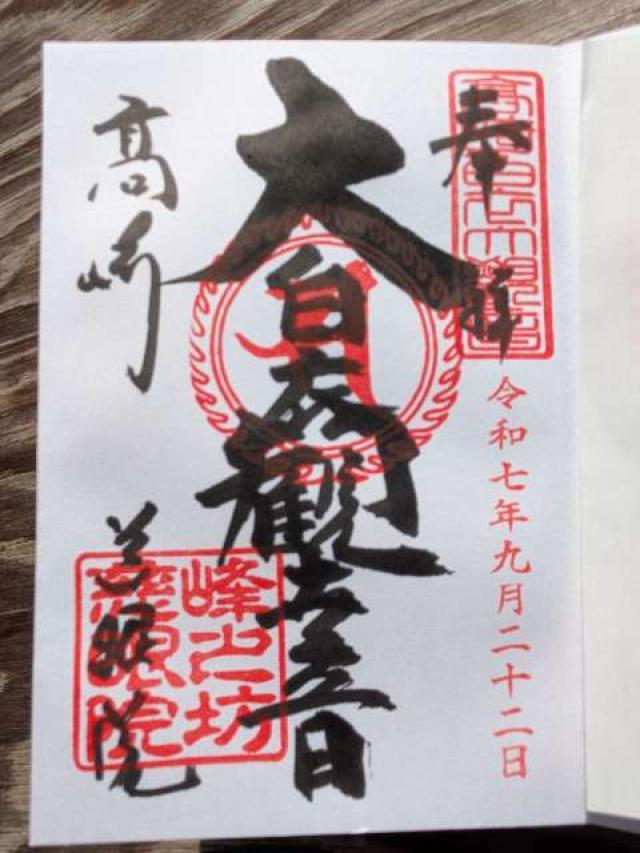 奉拝
令和七年九月二十二日
大白衣観世音
高崎
慈眼院
峰山坊
慈眼院